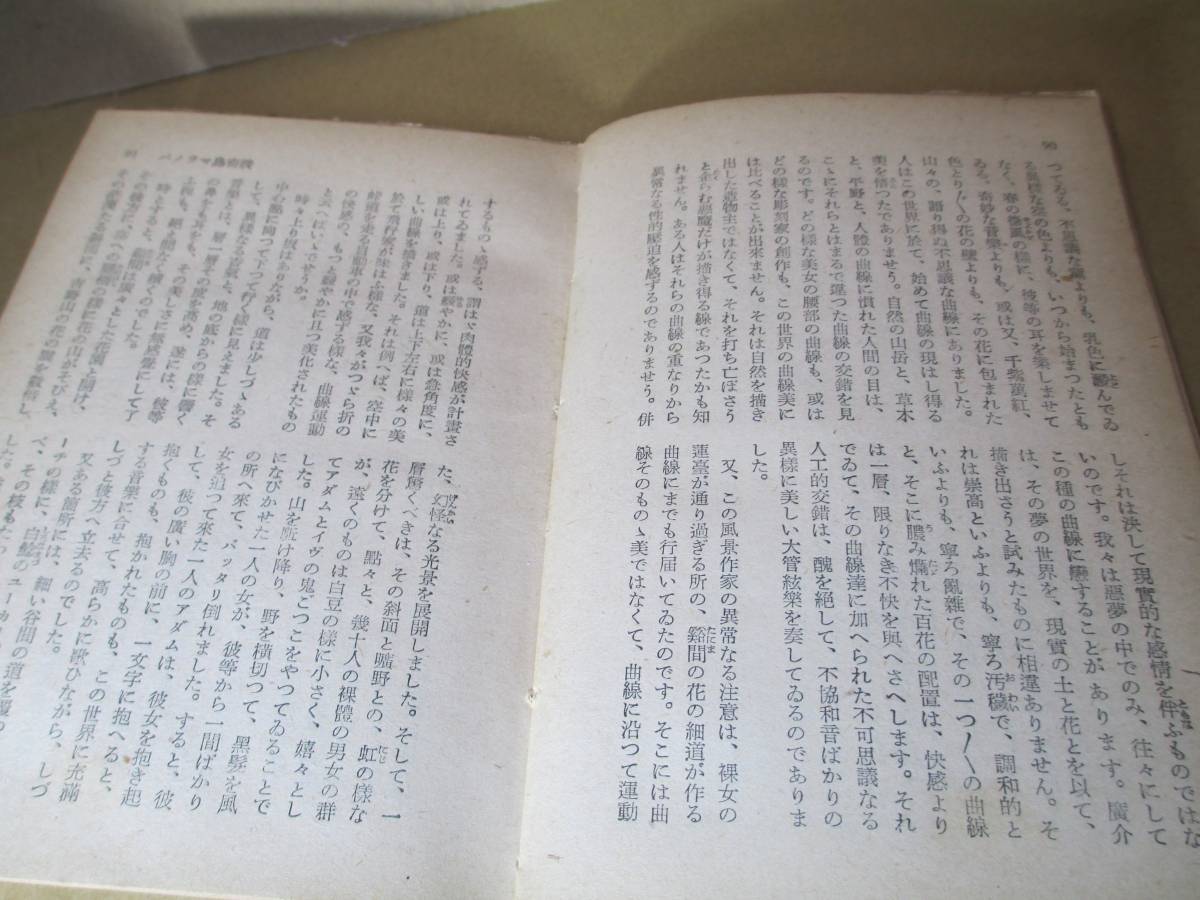 90
つてゐる、不思議な靄よりも、乳色に澱んでゐ
る異様な空の色よりも、いつから始まつたとも
なく、春の微風の様に、彼等の耳を楽しませて
ゐる、奇妙な音樂よりも、或は又、千紫萬紅、
色とり〴〵の花の壁よりも、その花に包まれた
山々の、語り得ぬ不思議な曲線にありました。
人はこの世界に於て、始めて曲線の現はし得る
美を悟つたでありませう。自然の山岳と、草木
と、平野と、人體の曲線に慣れた人間の目は、
こゝにそれらとはまるで違つた曲線の交錯を見
るのです。どの様な美女の腰部の曲線も、或は
どの様な彫刻家の創作も、この世界の曲線美に
は比べることが出来ません。それは自然を描き
出した造物主ではなくて、それを打ち亡ぼさう
と企らむ惡魔だけが描き得る線であつたかも知
れません。ある人はそれらの曲線の重なりから
異常なる性的壓迫を感ずるのでありませう。併
しそれは決して現實的な感情を伴ふものではな
いのです。我々は惡夢の中でのみ、往々にして
この種の曲線に戀することがあります。廣介
は、その夢の世界を、現實の土と花とを以て、
描き出さうと試みたものに相違ありません。そ
れは崇高といふよりも、寧ろ汚穢で、調和的と
いふよりも、寧ろ亂雜で、その一つ〳〵の曲線
と、そこに膿み爛れた百花の配置は、快感より
は一層、限りなき不快を與へさへします。それ
でゐて、その曲線達に加へられた不可思議なる
人工的交錯は、醜を絕して、不協和音ばかりの
異様に美しい大管絃樂を奏してゐるのでありま
した。
又、この風景作家の異常なる注意は、裸女の
蓮臺が通り過ぎる所の、谿間の花の細道が作る
曲線にまでも行届いてゐたのです。そこには曲
線そのものゝ美ではなくて、曲線に沿つて運動
91
パノラマ島奇談
するものゝ感ずる、謂はゞ肉體的快感が計畫さ
れてゐました。或は緩やかに、或は急角度に、
或は上り、或は下り、道は上下左右に様々の美
しい曲線を描きました。それは例へば、空中に
於て飛行家が味はふ様な、又我々がつゞら折の
峠道を走る自動車の中で感ずる様な、曲線運動
の快感の、もつと緩やかに且つ美化されたもの
と云へばいゝでせうか。
時々上り坂はありながら、道は少しづゝある
中心點に向つて下つて行く様に見えました。そ
して、異様なる香氣と、地の底からの様に響く
音樂とは、層一層その度を高め、遂には、彼等
の鼻をも耳をも、その美しさに無感覺にして了
ふ程も、絕え間なく續くのでした。
時とすると、谿間は廣々とした花園と開け、
その彼方に、空への懸橋の様に花の山がそびえ、
その茫漠たる斜面に、吉野山の花の雲を數倍し
た、幻怪なる光景を展開しました。そして、一
層驚くべきは、その斜面と曠野との、虹の様な
花を分けて、點々と、幾十人の裸體の男女の群
が、遠くのものは白豆の様に小さく、嬉々とし
てアダムとイヴの鬼ごつこをやつてゐることで
した。山を駈け降り、野を橫切つて、黑髮を風
になびかせた一人の女が、彼等から一間ばかり
の所へ來て、バッタリ倒れました。すると、彼
女を追つて來た一人のアダムは、彼女を抱き起
して、彼の廣い胸の前に、一文字に抱へると、
抱くものも、抱かれたものも、この世界に充滿
する音樂に合せて、高らかに歌ひながら、しづ
しづと彼方へ立去るのでした。
又ある箇所には、細い谷間の道を覆つ